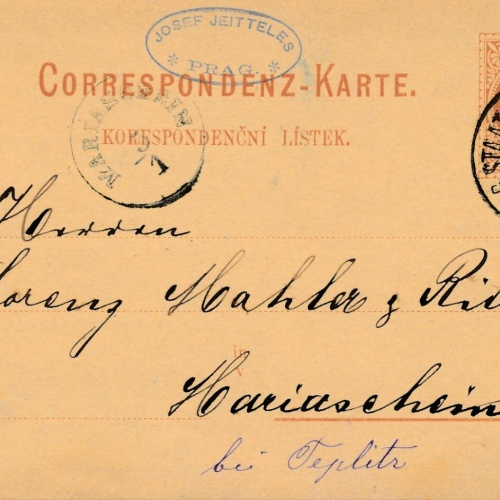 JOSEF JEITTELES
* PRAG. *
CORRESPONDENZ-KARTE.
KORESPONDENČNÍ LÍSTEK.
MARIASCHEIN
Herren
Lorenz Mahler &
in
Mariaschein
bei Teplitz